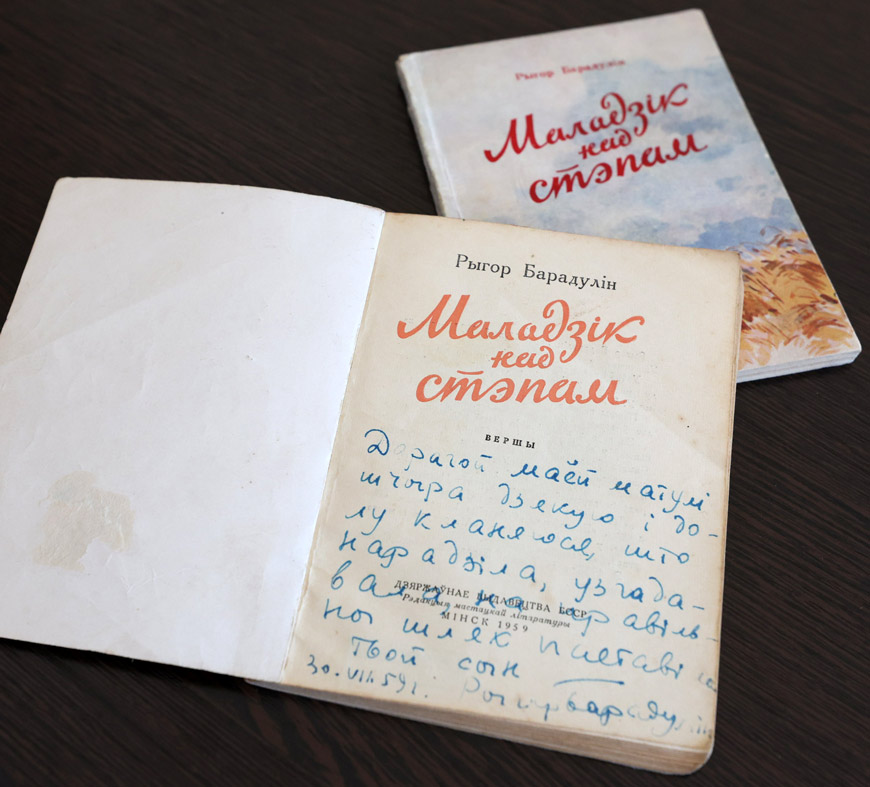 Рыгор Барадулін
Маладзік
над
стэпам
Рыгор Барадулін
Маладзік
над
стэпам
ВЕРШЫ
Дарагой маёй матулі
шчыра дзякую і до-
лу кланяюся, што
нарадзіла, узгада-
вала, на правіль-
ны шлях паставіла
Твой сын
30.VII.59 г. Рыгор Барадулін
ДЗЯРЖАЎНАЕ ВЫДАВЕЦТВА БССР
Рэдакцыя мастацкай літаратуры
МІНСК 1959